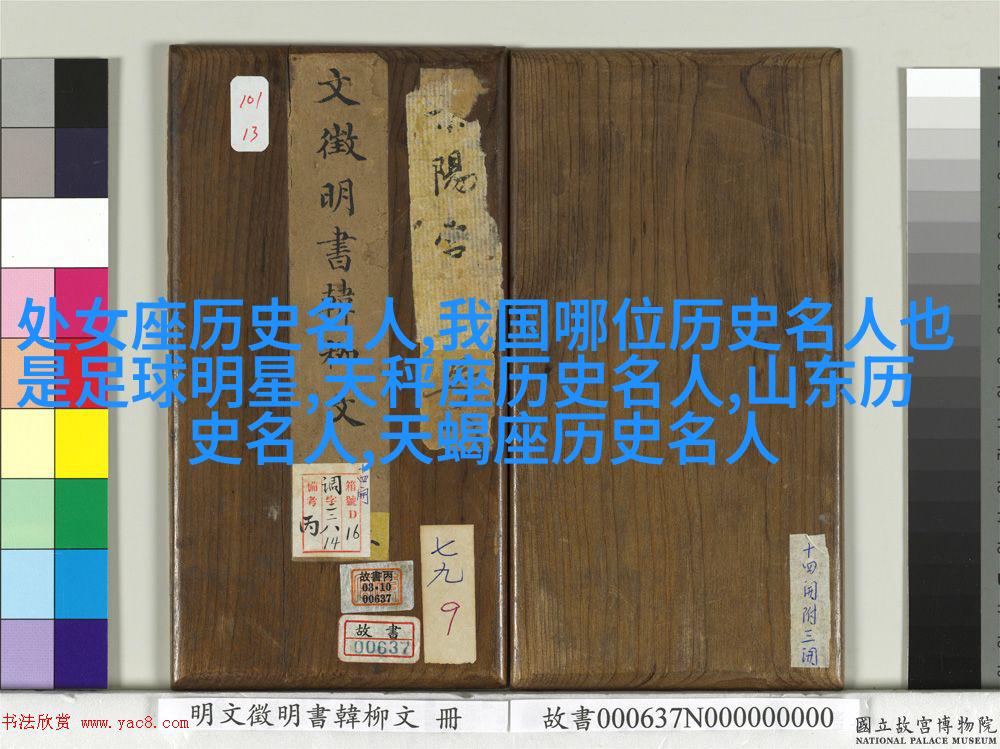 101
13
文徵明書韓柳文
陽宮
处女座历史名人,我国哪位历史名人也
是足球明星,天秤座历史名人,山东历
史名人,天蝎座历史名人
十四開
箱號D16
調字三八14
備考丙
故書丙
03·10
00637
故書
00637
七九
9
十四開附三開
明文徵明書韓柳文 冊
故書000637N000000000
書法欣赏 www.yac8.com
國立故宮博物院
NATIONAL PALACE MUSEUM